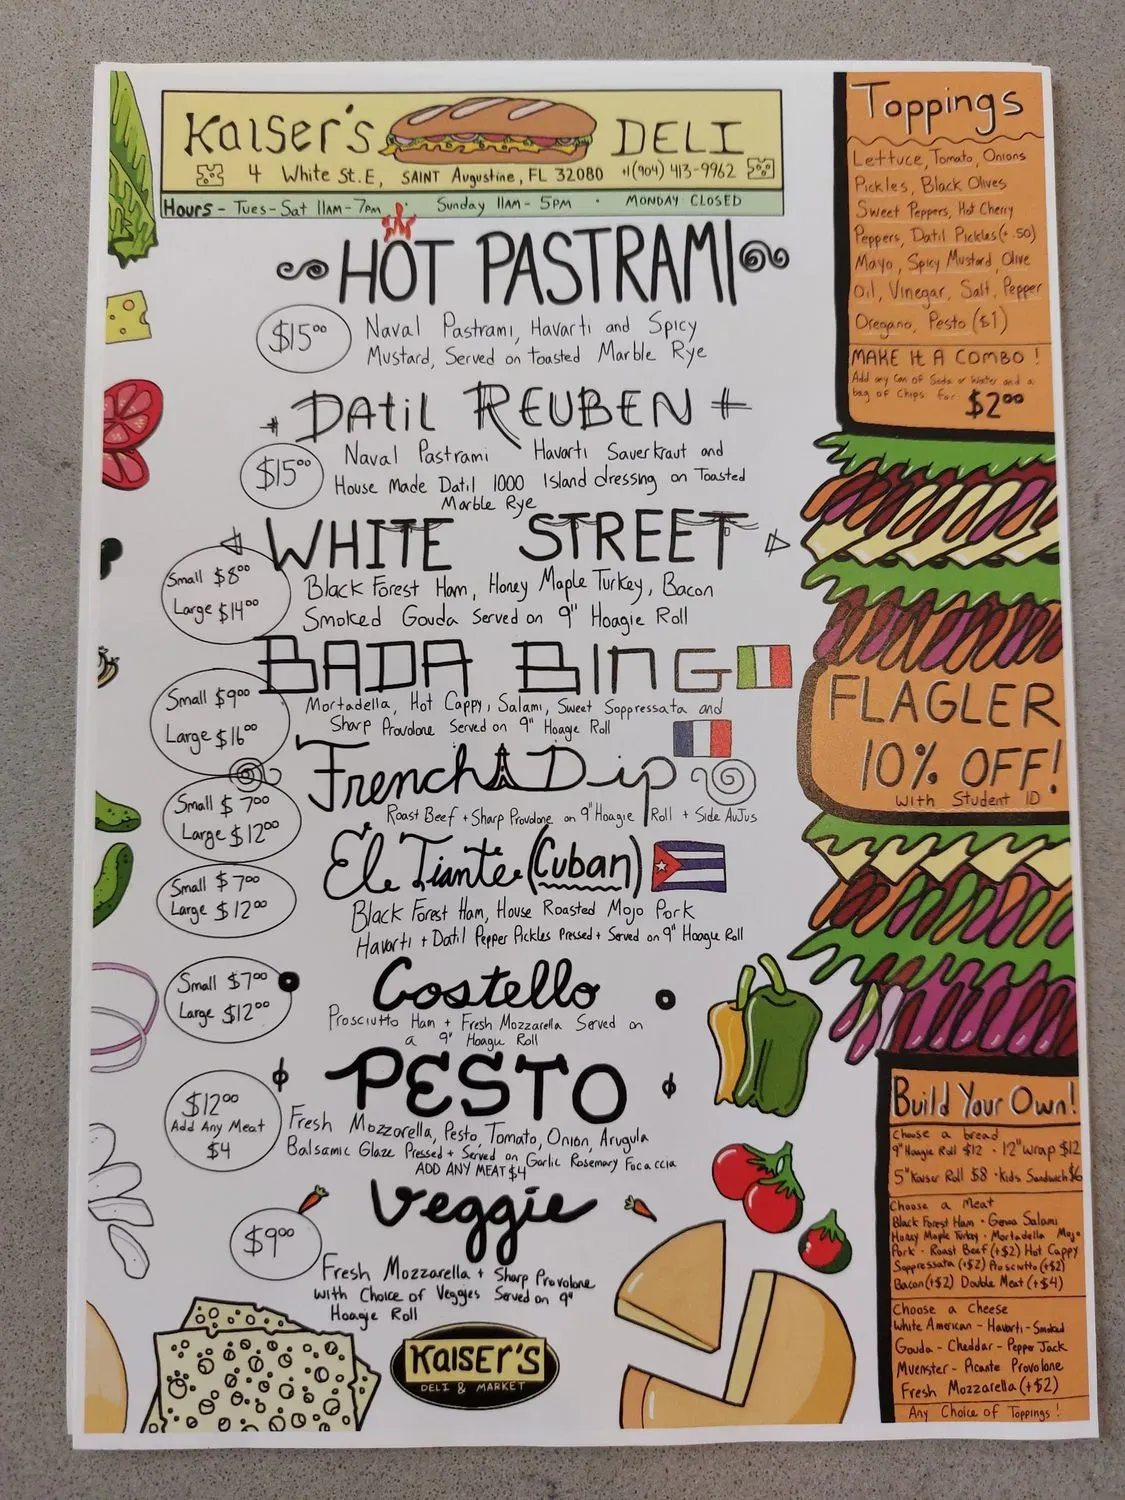 Kaiser's DELI
4 White St. E, SAINT Augustine, FL 32080 +1(904) 413-9962
Hours - Tues-Sat 11AM-7PM · Sunday 11AM-5PM · MONDAY CLOSED
HOT PASTRAMI
$15⁰⁰
Naval Pastrami, Havarti and Spicy
Mustard, Served on toasted Marble Rye
DATIL REUBEN
$15⁰⁰
Naval Pastrami Havarti Sauerkraut and
House Made Datil 1000 Island dressing on Toasted
Marble Rye
WHITE STREET
Small $8⁰⁰
Large $14⁰⁰
Black Forest Ham, Honey Maple Turkey, Bacon
Smoked Gouda Served on 9" Hoagie Roll
BADA BING
Small $9⁰⁰
Large $16⁰⁰
Mortadella, Hot Cappy, Salami, Sweet Soppressata and
Sharp Provolone Served on 9" Hoagie Roll
French Dip
Small $7⁰⁰
Large $12⁰⁰
Roast Beef + Sharp Provolone on 9" Hoagie Roll + Side AuJus
El Tiante (Cuban)
Small $7⁰⁰
Large $12⁰⁰
Black Forest Ham, House Roasted Mojo Pork
Havarti + Datil Pepper Pickles Pressed + Served on 9" Hoagie Roll
Costello
Small $7⁰⁰
Large $12⁰⁰
Prosciutto Ham + Fresh Mozzarella Served on
a 9" Hoagie Roll
PESTO
$12⁰⁰
Add Any Meat
$4
Fresh Mozzorella, Pesto, Tomato, Onion, Arugula
Balsamic Glaze Pressed + Served on Garlic Rosemary Focaccia
ADD ANY MEAT $4
Veggie
$9⁰⁰
Fresh Mozzarella + Sharp Provolone
with Choice of Veggies Served on 9"
Hoagie Roll
KAISER'S
DELI & MARKET
Toppings
Lettuce, Tomato, Onions
Pickles, Black Olives
Sweet Peppers, Hot Cherry
Peppers, Datil Pickles (+.50)
Mayo, Spicy Mustard, Olive
Oil, Vinegar, Salt, Pepper
Oregano, Pesto ($1)
MAKE It A COMBO!
Add any Can of Soda or Water and a
bag of Chips for $2⁰⁰
FLAGLER
10% OFF!
With Student ID
Build Your Own!
Choose a bread
9" Hoagie Roll $12 · 12" Wrap $12
5" Kaiser Roll $8 · Kids Sandwich $6
Choose a Meat
Black Forest Ham · Genoa Salami
Honey Maple Turkey · Mortadella Mojo
Pork · Roast Beef (+$2) Hot Cappy
Soppressata (+$2) Prosciutto (+$2)
Bacon (+$2) Double Meat (+$4)
Choose a Cheese
White American - Havarti - Smoked
Gouda - Cheddar - Pepper Jack
Muenster - Picante Provolone
Fresh Mozzarella (+$2)
Any Choice of Toppings!